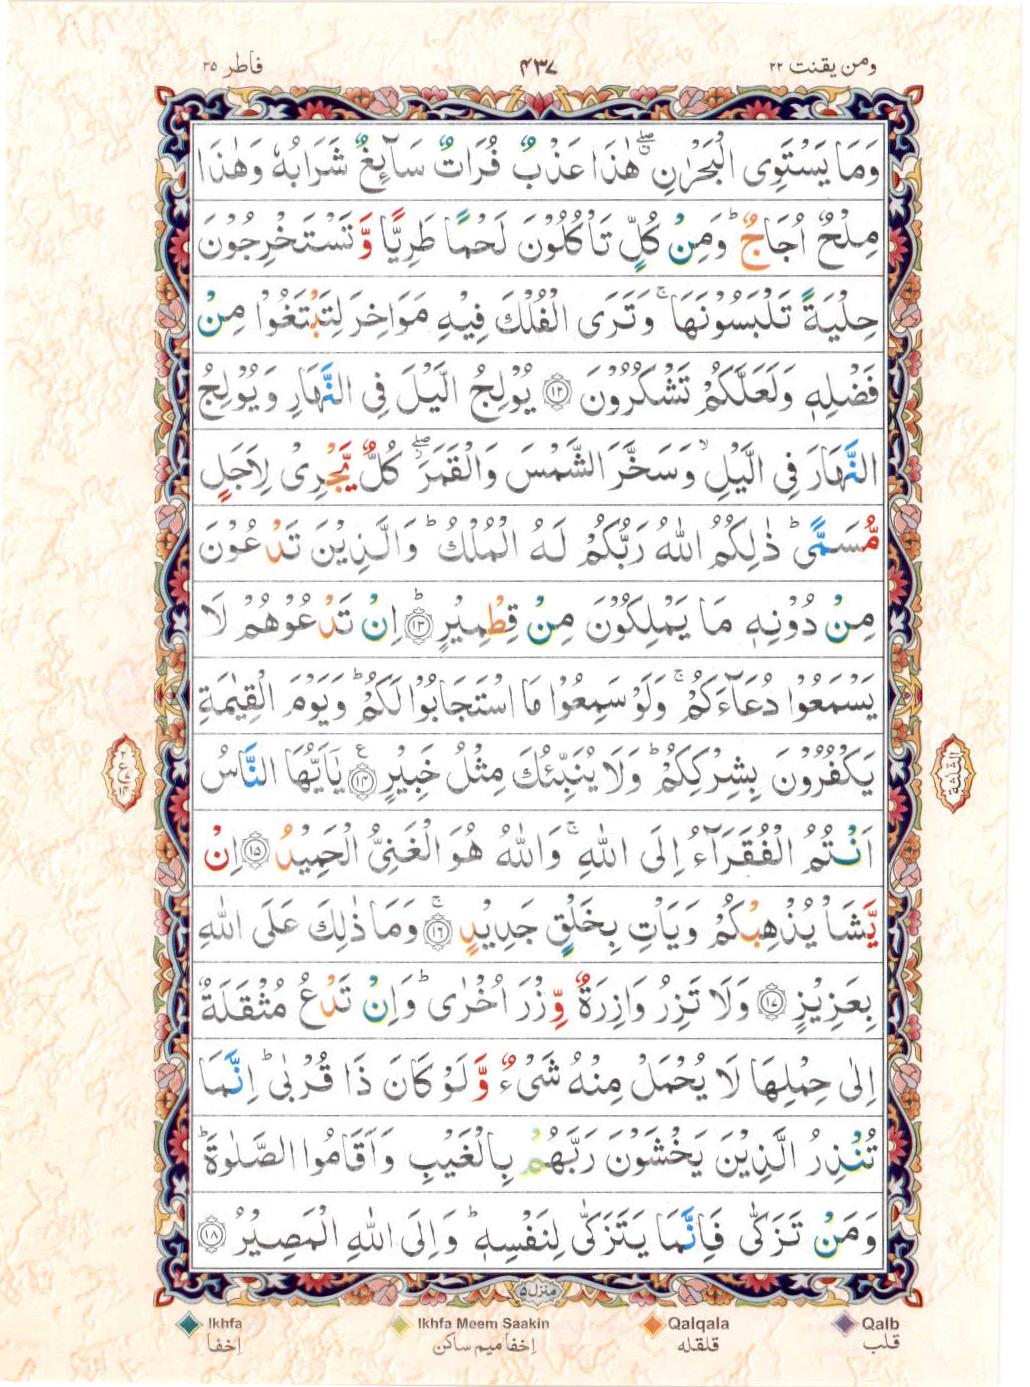 ومن يقنت ٢٢
٤٣٧
فاطر ٣٥
وَمَا يَسْتَوِى الْبَحْرٰنِ ۖ هٰذَا عَذْبٌ فُرَاتٌ سَآئِغٌ شَرَابُهٗ وَهٰذَا
مِلْحٌ اُجَاجٌ ؕ وَمِنْ كُلٍّ تَاْكُلُوْنَ لَحْمًا طَرِيًّا وَّتَسْتَخْرِجُوْنَ
حِلْيَةً تَلْبَسُوْنَهَا ۚ وَتَرَى الْفُلْكَ فِيْهِ مَوَاخِرَ لِتَبْتَغُوْا مِنْ
فَضْلِهٖ وَلَعَلَّكُمْ تَشْكُرُوْنَ ﴿۱۲﴾ يُوْلِجُ الَّيْلَ فِى النَّهَارِ وَيُوْلِجُ
النَّهَارَ فِى الَّيْلِ ۙ وَسَخَّرَ الشَّمْسَ وَالْقَمَرَ ۖ كُلٌّ يَّجْرِىْ لِاَجَلٍ
مُّسَمًّى ؕ ذٰلِكُمُ اللّٰهُ رَبُّكُمْ لَهُ الْمُلْكُ ؕ وَالَّذِيْنَ تَدْعُوْنَ
مِنْ دُوْنِهٖ مَا يَمْلِكُوْنَ مِنْ قِطْمِيْرٍ ﴿۱۳﴾ؕ اِنْ تَدْعُوْهُمْ لَا
يَسْمَعُوْا دُعَآءَكُمْ ۚ وَلَوْ سَمِعُوْا مَا اسْتَجَابُوْا لَكُمْ ؕ وَيَوْمَ الْقِيٰمَةِ
يَكْفُرُوْنَ بِشِرْكِكُمْ ؕ وَلَا يُنَبِّئُكَ مِثْلُ خَبِيْرٍ ﴿۱۴﴾ يٰۤاَيُّهَا النَّاسُ
اَنْتُمُ الْفُقَرَآءُ اِلَى اللّٰهِ ۚ وَاللّٰهُ هُوَ الْغَنِىُّ الْحَمِيْدُ ﴿۱۵﴾ اِنْ
يَّشَاْ يُذْهِبْكُمْ وَيَاْتِ بِخَلْقٍ جَدِيْدٍ ﴿۱۶﴾ۚ وَمَا ذٰلِكَ عَلَى اللّٰهِ
بِعَزِيْزٍ ﴿۱۷﴾ وَلَا تَزِرُ وَازِرَةٌ وِّزْرَ اُخْرٰى ؕ وَاِنْ تَدْعُ مُثْقَلَةٌ
اِلٰى حِمْلِهَا لَا يُحْمَلْ مِنْهُ شَىْءٌ وَّلَوْ كَانَ ذَا قُرْبٰى ؕ اِنَّمَا
تُنْذِرُ الَّذِيْنَ يَخْشَوْنَ رَبَّهُمْ بِالْغَيْبِ وَاَقَامُوا الصَّلٰوةَ ؕ
وَمَنْ تَزَكّٰى فَاِنَّمَا يَتَزَكّٰى لِنَفْسِهٖ ؕ وَاِلَى اللّٰهِ الْمَصِيْرُ ﴿۱۸﴾
منزل ۵
Ikhfa Ikhfa Meem Saakin Qalqala Qalb
اِخفا اِخفا میم ساکن قلقله قلب